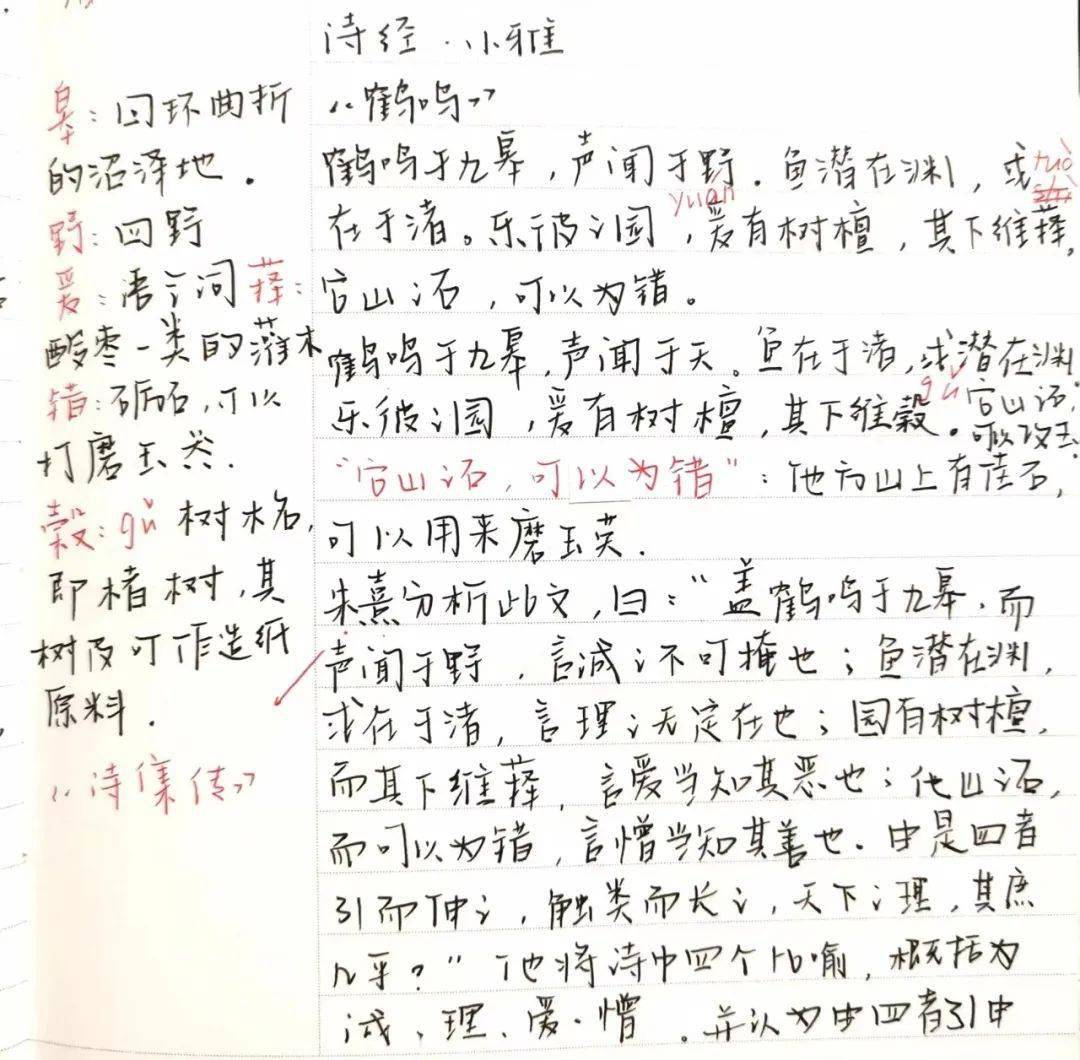 诗经·小雅
《鹤鸣》
鹤鸣于九皋，声闻于野．鱼潜在渊，或
tuò
yuán
在于渚。乐彼之园，爰有树檀，其下维萚，
它山之石，可以为错。
鹤鸣于九皋，声闻于天。鱼在于渚，或潜在渊
gǔ
乐彼之园，爰有树檀，其下维榖．它山之石，
可以攻玉．
“它山之石，可以为错”：他方山上有佳石，
可以用来磨玉英．
朱熹分析此文，曰：“盖鹤鸣于九皋，而
声闻于野，言诚之不可掩也；鱼潜在渊，
或在于渚，言理之无定在也；园有树檀，
而其下维萚，言爱当知其恶也；他山之石，
而可以为错，言憎当知其善也．由是四者
引而伸之，触类而长之，天下之理，其庶
几乎？”他将诗中四个比喻，概括为
诚、理、爱、憎．并认为由四者引申
皋：回环曲折
的沼泽地．
野：四野
爰：语言词 萚：
酸枣一类的灌木
错：砺石，可以
打磨玉类．
榖：gǔ 树木名，
即楮树，其
树皮可作造纸
原料．
《诗集传》